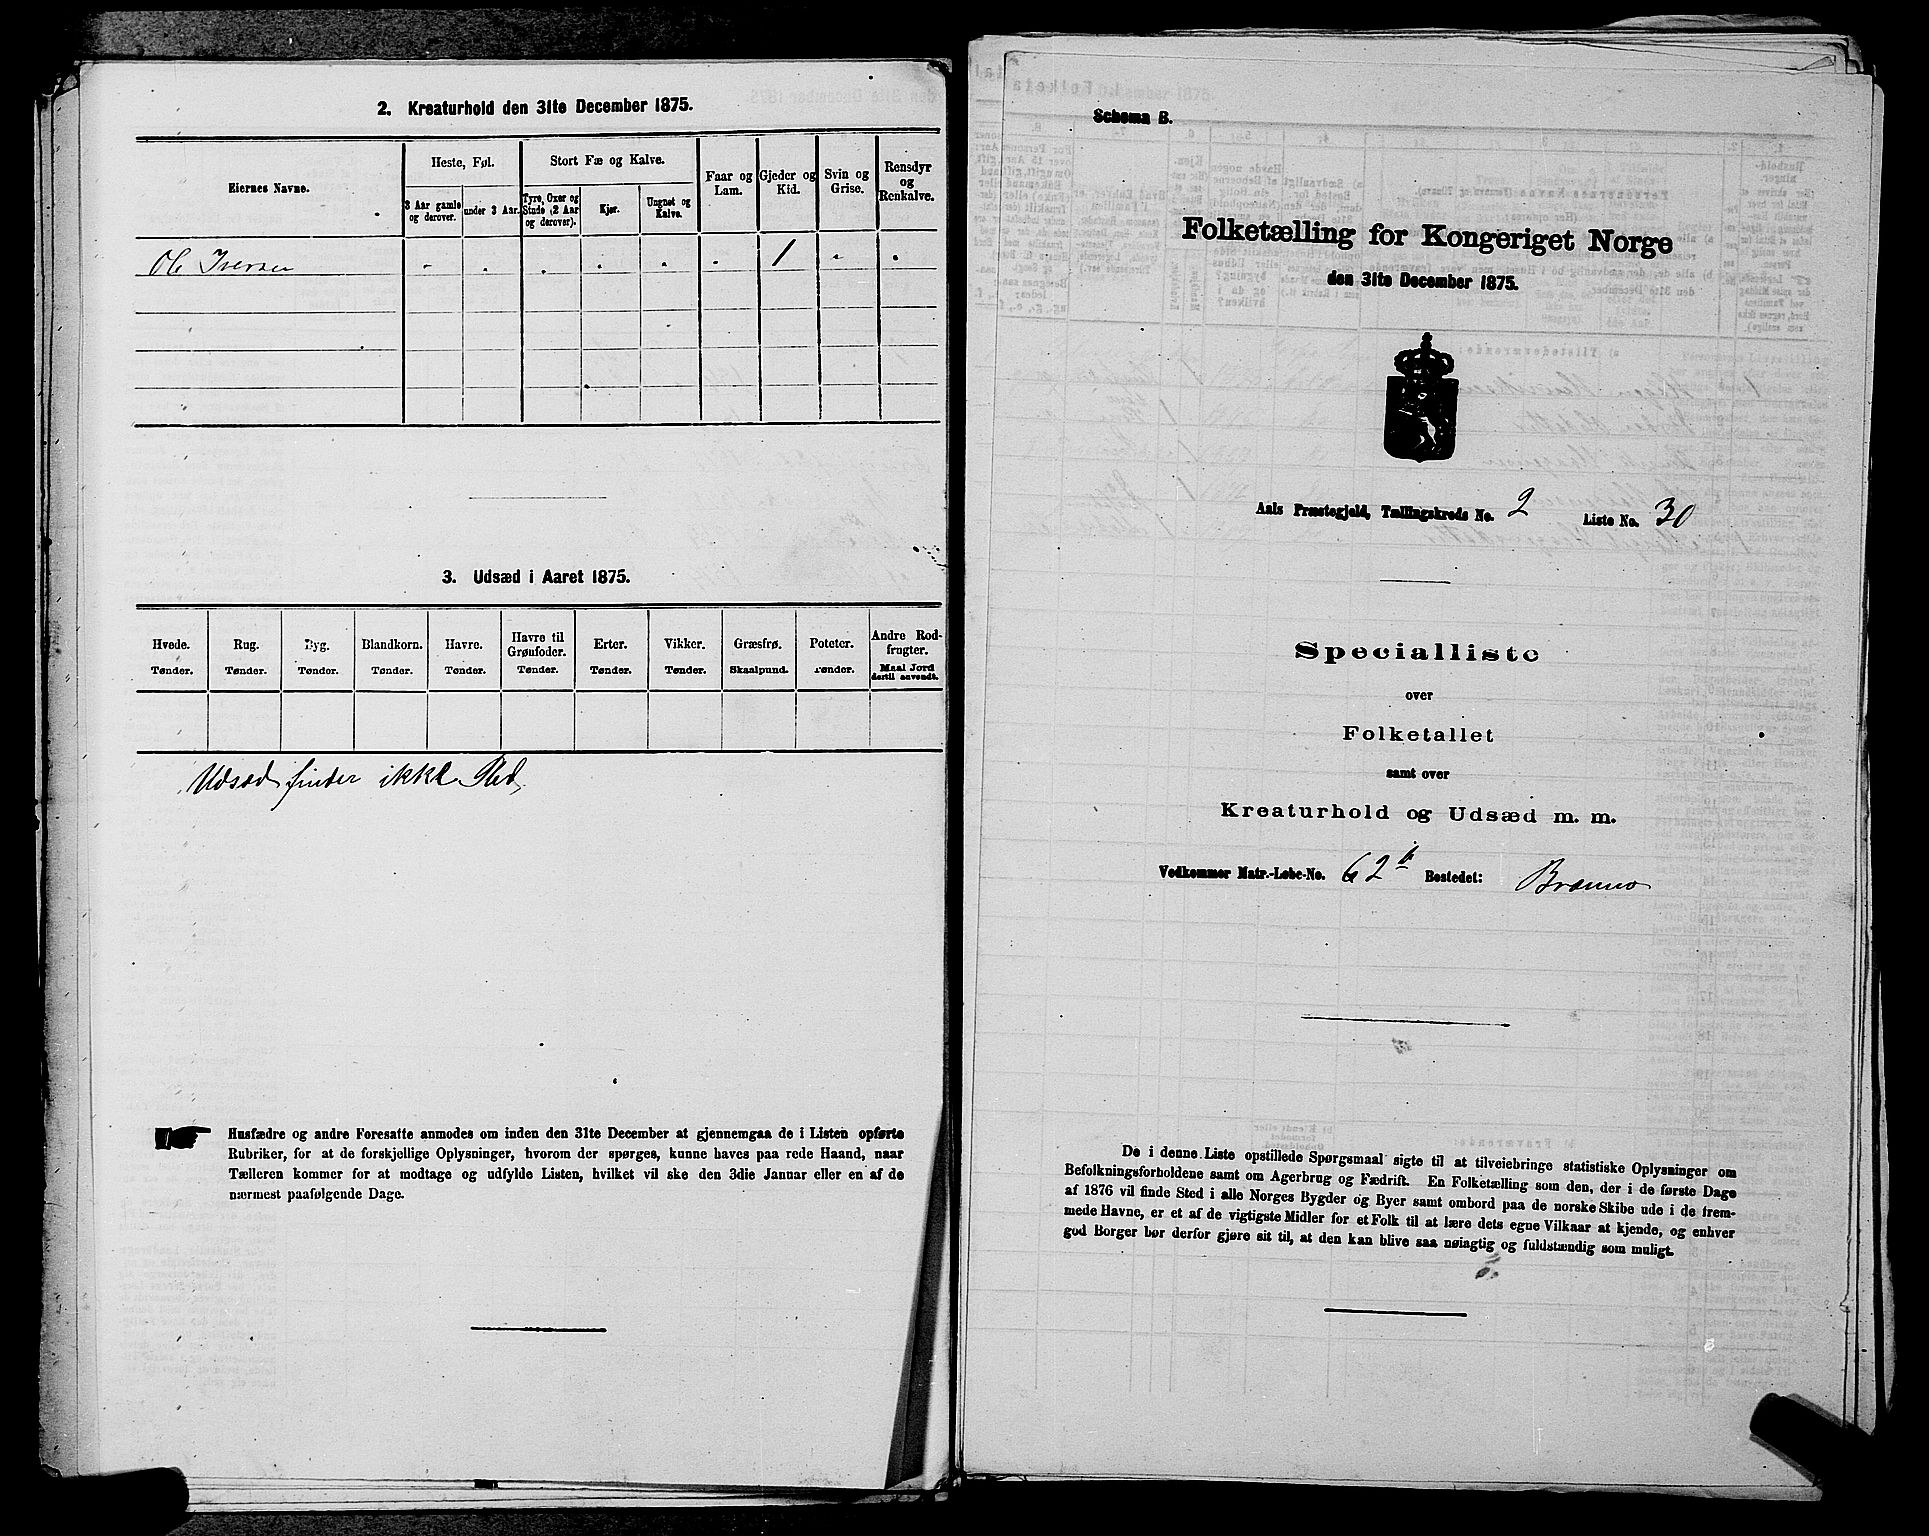 2. Kreaturhold den 31te December 1875.
Eiernes Navne.
Heste, Føl.
3 Aar gamle og derover.
under 3 Aar.
Stort Fæ og Kalve.
Tyre, Oxer og Stude (2 Aar og derover).
Kjør.
Ungnøt og Kalve.
Faar og Lam.
Gjeder og Kid.
Svin og Grise.
Rensdyr og Renkalve.
Ole Iversen " " " " " " 1 " "
3. Udsæd i Aaret 1875.
Hvede. Rug. Byg. Blandkorn. Havre. Havre til Grønfoder. Erter. Vikker. Græsfrø. Poteter. Andre Rodfrugter.
Tønder. Tønder. Tønder. Tønder. Tønder. Tønder. Tønder. Tønder. Skaalpund. Tønder. Maal Jord dertil anvendt.
Udsæd finder ikke Sted
Husfædre og andre Foresatte anmodes om inden den 31te December at gjennemgaa de i Listen opførte
Rubriker, for at de forskjellige Oplysninger, hvorom der spørges, kunne haves paa rede Haand, naar
Tælleren kommer for at modtage og udfylde Listen, hvilket vil ske den 3die Januar eller en af de
nærmest paafølgende Dage.
Schema B.
Folketælling for Kongeriget Norge
den 31te December 1875.
Aals Præstegjeld, Tællingskreds No. 2 Liste No. 30
Specialliste
over
Folketallet
samt over
Kreaturhold og Udsæd m. m.
Vedkommer Matr.-Løbe-No. 62 Bostedet:
De i denne Liste opstillede Spørgsmaal sigte til at tilveiebringe statistiske Oplysninger om
Befolkningsforholdene samt om Agerbrug og Fædrift. En Folketælling som den, der i de første Dage
af 1876 vil finde Sted i alle Norges Bygder og Byer samt ombord paa de norske Skibe ude i de frem-
mede Havne, er et af de vigtigste Midler for et Folk til at lære dets egne Vilkaar at kjende, og enhver
god Borger bør derfor gjøre sit til, at den kan blive saa nøiagtig og fuldstændig som muligt.